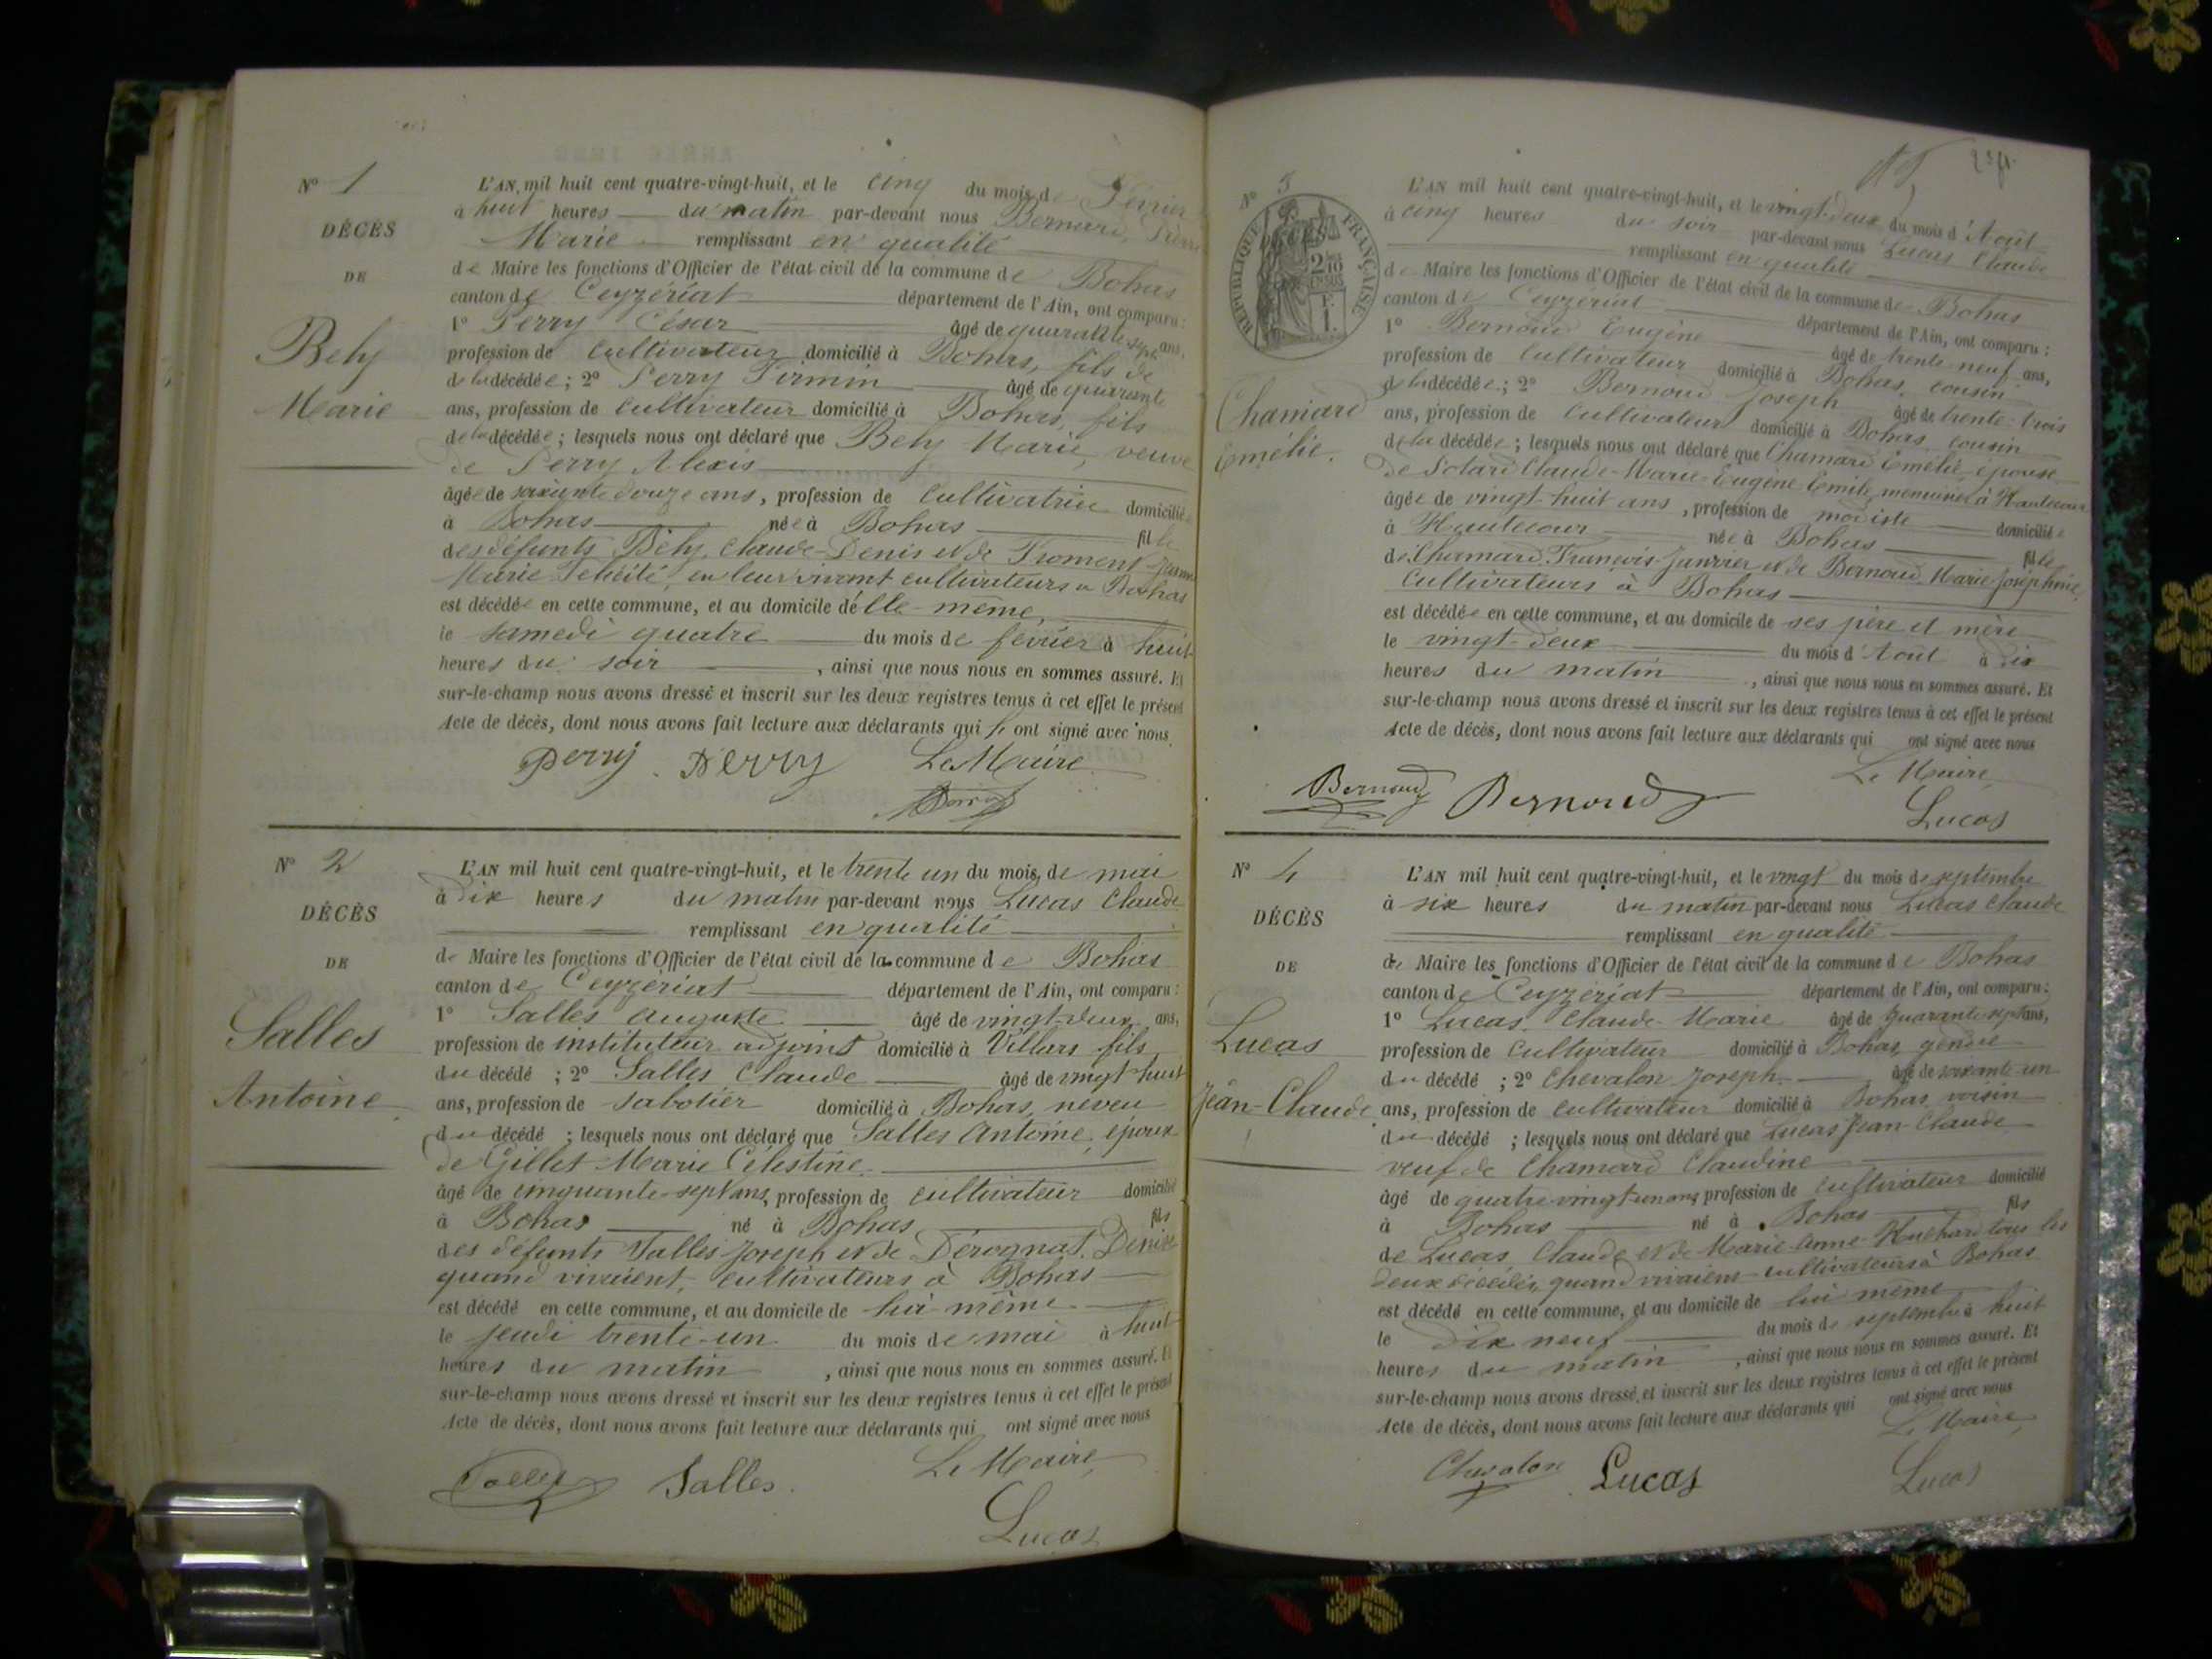 N° 1
DÉCÈS
DE
Bely
Marie
L'AN mil huit cent quatre-vingt-huit, et le cinq du mois de Février
à huit heures du matin par-devant nous Bernard, Pierre
Marie remplissant en qualité
de Maire les fonctions d'Officier de l'état civil de la commune de Bohas
canton de Ceyzériat département de l'Ain, ont comparu :
1° Perry César âgé de quarante sept ans,
profession de cultivateur domicilié à Bohas, fils de
de la décédée ; 2° Perry Firmin âgé de quarante
ans, profession de cultivateur domicilié à Bohas, fils
de la décédée ; lesquels nous ont déclaré que Bely Marie, veuve
de Perry Alexis
âgée de soixante douze ans, profession de cultivatrice domiciliée
à Bohas née à Bohas fille
des défunts Bély Claude-Denis et de Froment Jeanne
Marie Felicité, en leur vivant cultivateurs à Bohas
est décédée en cette commune, et au domicile d'elle-même,
le samedi quatre du mois de février à huit
heures du soir , ainsi que nous nous en sommes assuré. Et
sur-le-champ nous avons dressé et inscrit sur les deux registres tenus à cet effet le présent
Acte de décès, dont nous avons fait lecture aux déclarants qui ont signé avec nous.
Perry Perry Le Maire
N° 2
DÉCÈS
DE
Salles
Antoine
L'AN mil huit cent quatre-vingt-huit, et le trente un du mois de mai
à dix heures du matin par-devant nous Lucas Claude
remplissant en qualité
de Maire les fonctions d'Officier de l'état civil de la commune de Bohas
canton de Ceyzériat département de l'Ain, ont comparu :
1° Salles Auguste âgé de vingt-deux ans,
profession de instituteur adjoint domicilié à Villars fils
du décédé ; 2° Salles Claude âgé de vingt huit
ans, profession de sabotier domicilié à Bohas, neveu
du décédé ; lesquels nous ont déclaré que Salles Antoine, époux
de Gillet Marie Célestine
âgé de cinquante-sept ans, profession de cultivateur domicilié
à Bohas né à Bohas fils
des défunts Salles Joseph et de Dérognat Denise
quand vivaient, cultivateurs à Bohas
est décédé en cette commune, et au domicile de lui-même
le jeudi trente-un du mois de mai à huit
heures du matin , ainsi que nous nous en sommes assuré. Et
sur-le-champ nous avons dressé et inscrit sur les deux registres tenus à cet effet le présent
Acte de décès, dont nous avons fait lecture aux déclarants qui ont signé avec nous
Salles Salles. Le Maire,
Lucas
N° 3
RÉPUBLIQUE FRANÇAISE
Chamard
Emélie.
L'AN mil huit cent quatre-vingt-huit, et le vingt-deux du mois d'Août
à cinq heures du soir par-devant nous Lucas Claude
remplissant en qualité
de Maire les fonctions d'Officier de l'état civil de la commune de Bohas
canton de Ceyzériat département de l'Ain, ont comparu :
1° Bernoud Eugène âgé de trente neuf ans,
profession de cultivateur domicilié à Bohas, cousin
de la décédée ; 2° Bernoud Joseph âgé de trente-trois
ans, profession de cultivateur domicilié à Bohas cousin
de la décédée ; lesquels nous ont déclaré que Chamard Emélie épouse
de Sotard Claude-Marie-Eugène-Emile, menuisier à Hautecour
âgée de vingt-huit ans, profession de modiste domiciliée
à Hautecour née à Bohas fille
de Chamard François-Janvier et de Bernoud Marie Joséphine,
cultivateurs à Bohas
est décédée en cette commune, et au domicile de ses père et mère
le vingt-deux du mois d'Août à dix
heures du matin , ainsi que nous nous en sommes assuré. Et
sur-le-champ nous avons dressé et inscrit sur les deux registres tenus à cet effet le présent
Acte de décès, dont nous avons fait lecture aux déclarants qui ont signé avec nous
Le Maire
Bernoud Bernoud
Lucas
N° 4
DÉCÈS
DE
Lucas
Jean-Claude
L'AN mil huit cent quatre-vingt-huit, et le vingt du mois de septembre
à six heures du matin par-devant nous Lucas Claude
remplissant en qualité
de Maire les fonctions d'Officier de l'état civil de la commune de Bohas
canton de Ceyzériat département de l'Ain, ont comparu :
1° Lucas Claude-Marie âgé de quarante-sept ans,
profession de cultivateur domicilié à Bohas, gendre
du décédé ; 2° Chevalon Joseph âgé de soixante-un
ans, profession de cultivateur domicilié à Bohas, voisin
du décédé ; lesquels nous ont déclaré que Lucas Jean-Claude
veuf de Chamard Claudine
âgé de quatre-vingt-un ans, profession de cultivateur domicilié
à Bohas né à Bohas fils
de Lucas Claude et de Marie-Anne tous les
deux décédés, quand vivaient cultivateurs à Bohas
est décédé en cette commune, et au domicile de lui même
le dix neuf du mois de septembre à huit
heures du matin , ainsi que nous nous en sommes assuré. Et
sur-le-champ nous avons dressé et inscrit sur les deux registres tenus à cet effet le présent
Acte de décès, dont nous avons fait lecture aux déclarants qui ont signé avec nous
Le Maire,
Chevalon Lucas Lucas